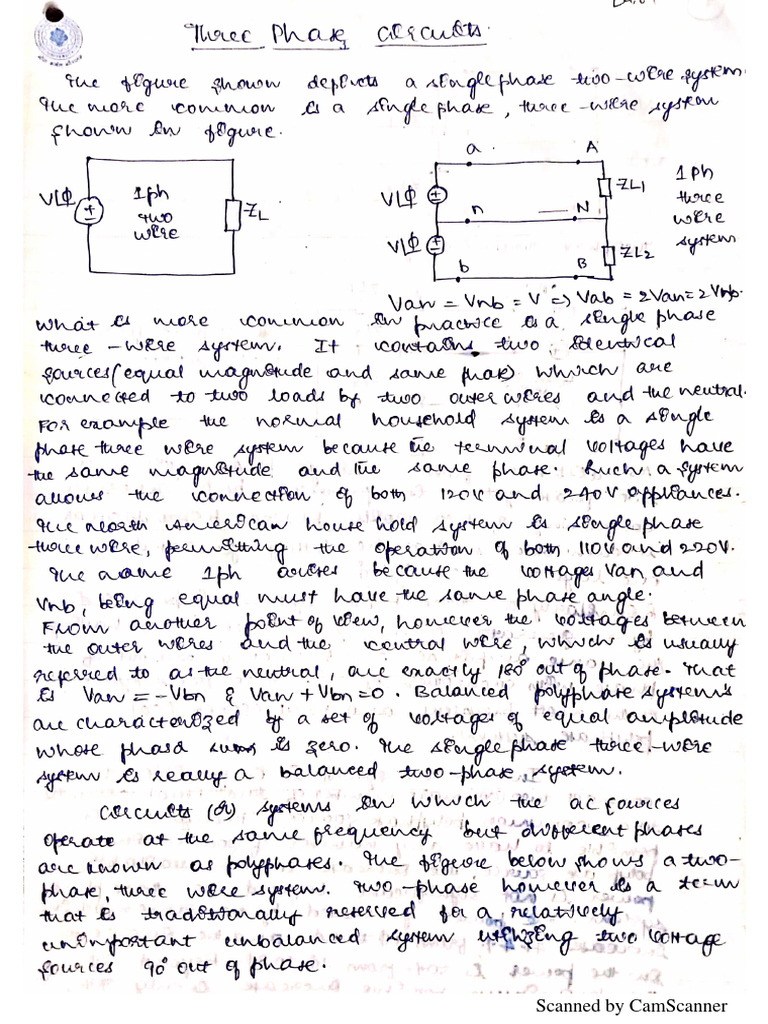 Three Phase Circuits
The figure shown depicts a single phase two-wire system.
The more common is a single phase, three-wire system
shown in figure.
V∠Φ
1ph
two
wire
ZL
a
A
V∠Φ
ZL1
n
N
V∠Φ
ZL2
b
B
1ph
three
wire
system
Van = Vnb = V => Vab = 2Van = 2Vnb.
What is more common in practice is a single phase
three-wire system. It contains two identical
sources (equal magnitude and same phase) which are
connected to two loads by two outer wires and the neutral.
For example the normal household system is a single
phase three wire system because the terminal voltages have
the same magnitude and the same phase. Such a system
allows the connection of both 120V and 240V appliances.
The north American house hold system is single phase
three wire, permitting the operation of both 110V and 220V.
The name 1ph arises because the voltages Van and
Vnb, being equal must have the same phase angle.
From another point of view, however the voltages between
the outer wires and the central wire, which is usually
referred to as the neutral, are exactly 180° out of phase. That
is Van = -Vbn & Van + Vbn = 0. Balanced polyphase systems
are characterized by a set of voltages of equal amplitude
whose phasor sum is zero. The single phase three-wire
system is really a balanced two-phase system.
Circuits (or) systems in which the ac sources
operate at the same frequency but different phases
are known as polyphases. The figure below shows a two-
phase, three wire system. Two-phase however is a term
that is traditionally reserved for a relatively
unimportant unbalanced system utilizing two voltage
sources 90° out of phase.
Scanned by CamScanner